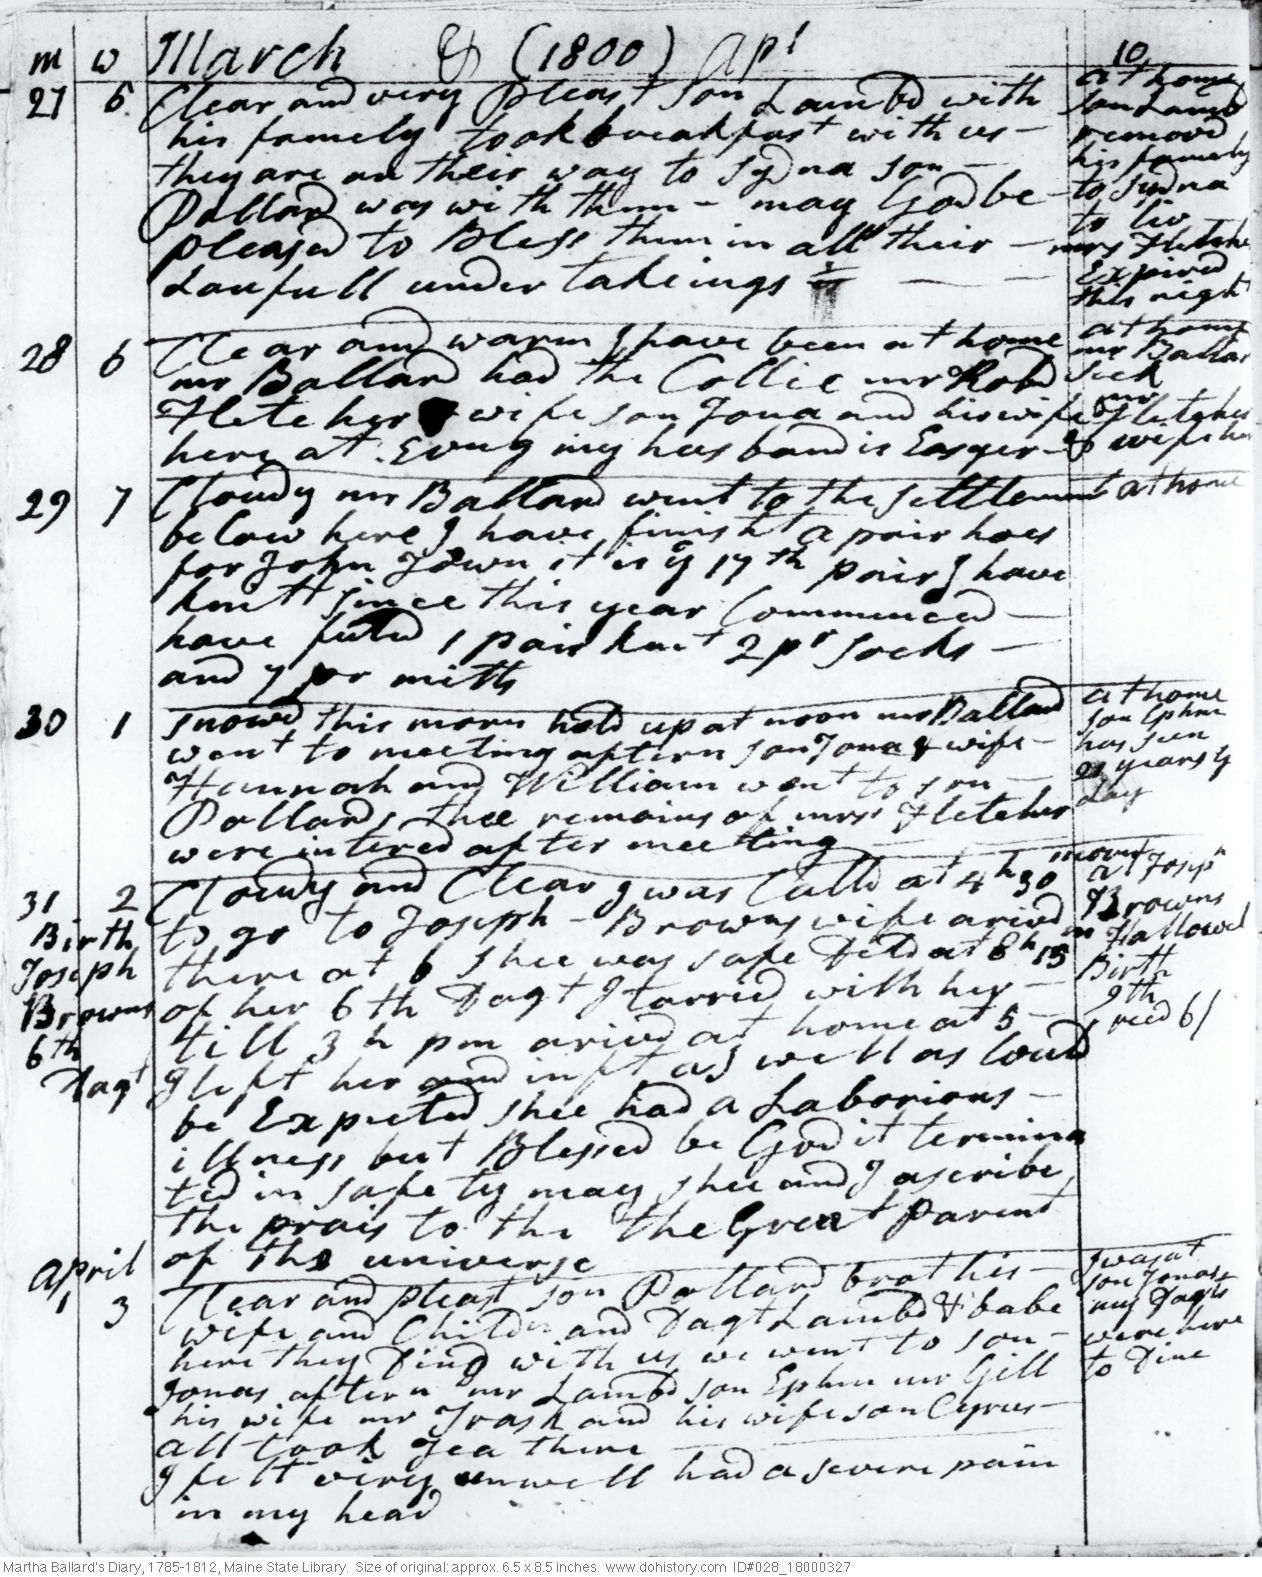 m w March & (1800) Apl
10
27 5 Clear and very pleast son Lambd with
his famely took breakfast with us -
they are on their way to Sydna son -
Pollard was with them - may God be -
pleased to Bless them in all their -
Laufull under takeings
at home
son Lambd
removd
his famely
to Sydna
to liv
mrs Fletcher
Expired
this night
28 6 Clear and warm I have been at home
mr Ballard had the Collic mr Robd
Fletcher & wife son Jona and his wife
here at Evng my husband is Easyer -
at home
mr Ballard
seek
mr
Fletcher
& wife here
29 7 Cloudy mr Ballard went to the settlement
below here I have finisht a pair hoes
for John Town it is ye 17th pair I have
knitt since this year Commenced -
have futed 1 pair knit 2 pr socks -
and 7 pr mitts
at home
30 1 snowd this morn held up at noon mr Ballard
went to meeting aftern son Jona & wife -
Hannah and William went to son -
Pollards thee remains of mrs Fletcher
were intered after meeting
at home
son Ephm
has seen
21 years ys
day
31 2 Cloudy and Clear I was Calld at 4 h 30 morn
to go to Joseph - Browns wife arivd
there at 6 shee was safe Deld at 8 h 15
of her 6th Dagt I tarried with her -
till 3 h pm arivd at home at 5 -
I left her and inft as well as Could
be Expected shee had a Laborious -
illness but Blessed be God it termina
ted in safety may shee and I ascribe
the prais to the the Great Parent
of the universe
Birth
Joseph
Browns
6th
Dagt
at Josepn
Browns
in Hallowel
Birth
9th
recd 6/
April
1 3 Clear and pleast son Pollard brot his -
wife and Childn and Dagt Lambd & babe
here they Dind with us we went to son -
Jonas aftern mr Lambd son Ephm mr Gill
his wife mr Trask and his wife son Cyrus -
all took Tea there
I felt very unwell had a severe pain
in my head
I was at
son Jonas
my Dagts
were here
to Dine
Martha Ballard's Diary, 1785-1812, Maine State Library. Size of original: approx. 6.5 x 8.5 inches. www.dohistory.com ID#028_18000327